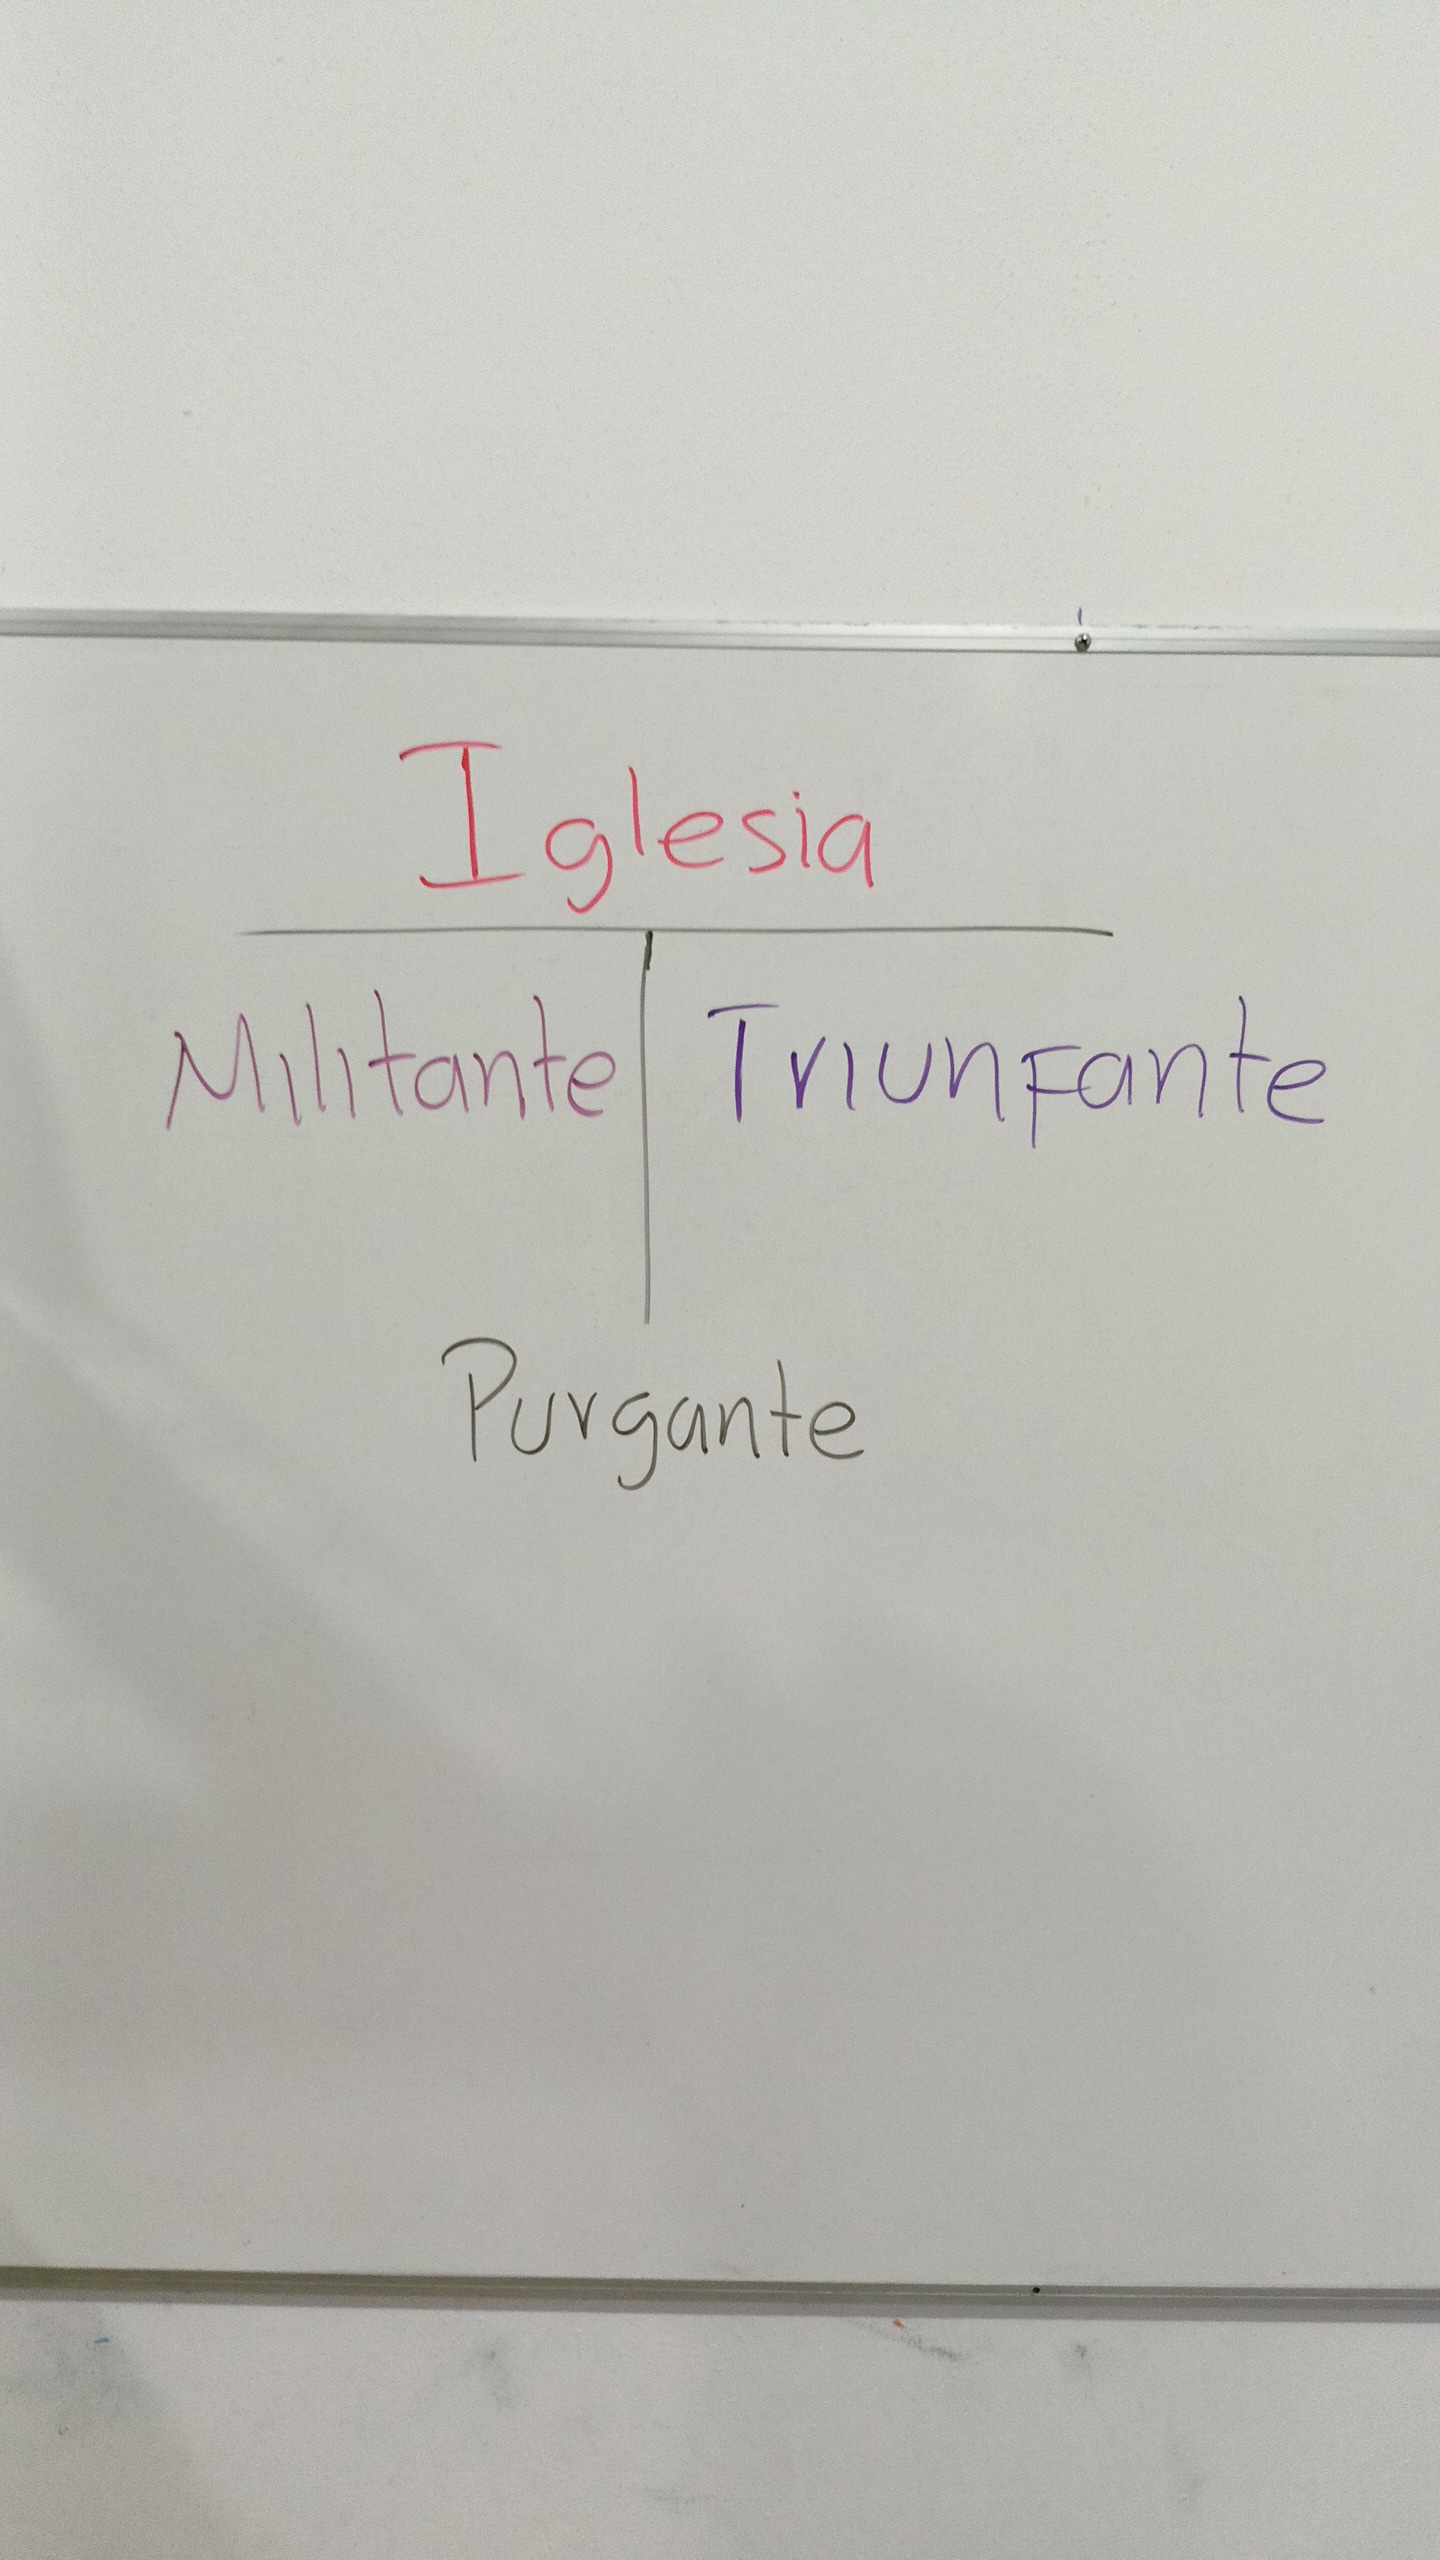 Iglesia
Militante Triunfante
Purgante